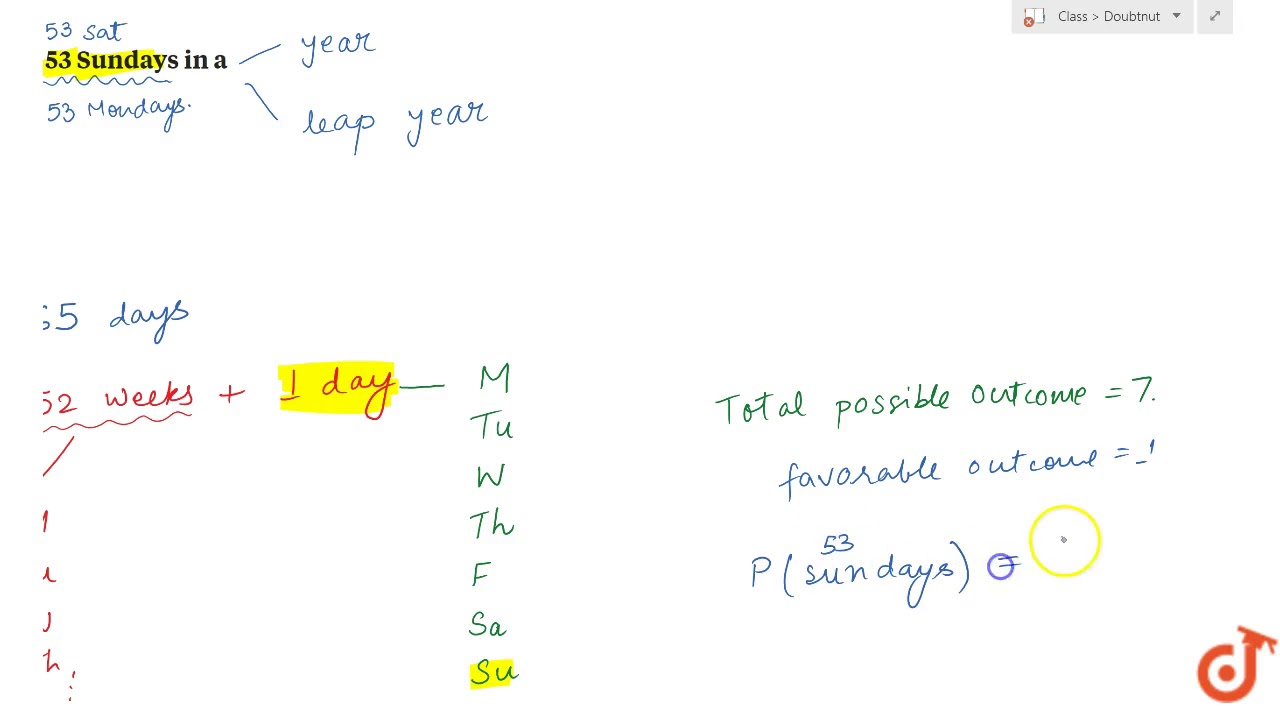 Class > Doubtnut
53 Sat
53 Sundays in a
year
53 Mondays.
leap year
5 days
52 weeks + 1 day — M
Tu
W
Th
F
Sa
Su
Total possible outcome = 7.
favorable outcome = 1
53
P(sundays) =